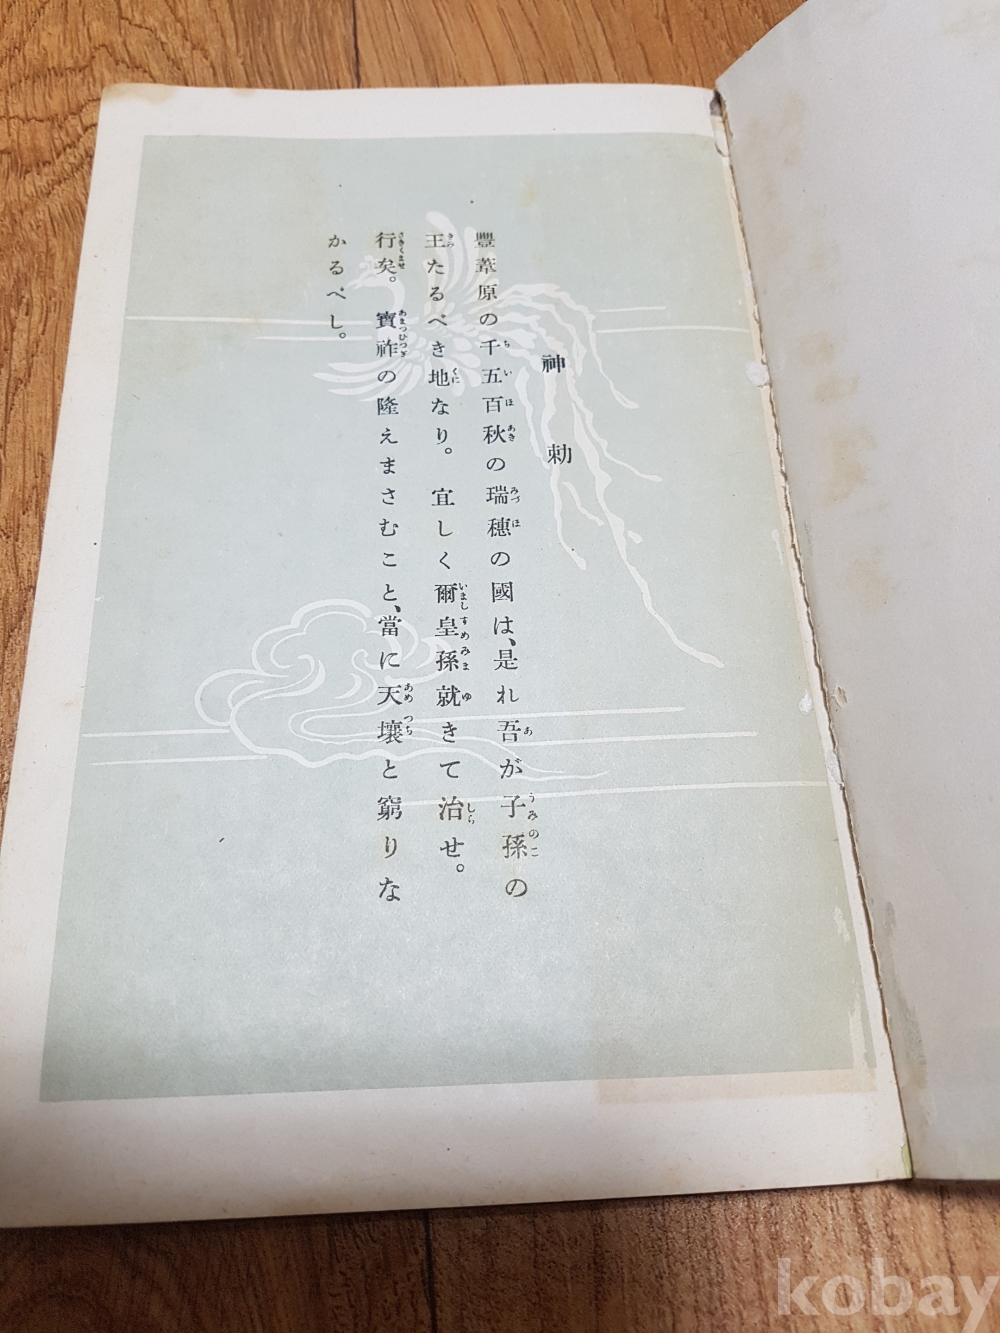 神勅
豐葦原の千五百秋の瑞穗の國は、是れ吾が子孫の
王たるべき地なり。宜しく爾皇孫就きて治せ。
行矣。寶祚の隆えまさむこと、當に天壤と窮りな
かるべし。
kobay